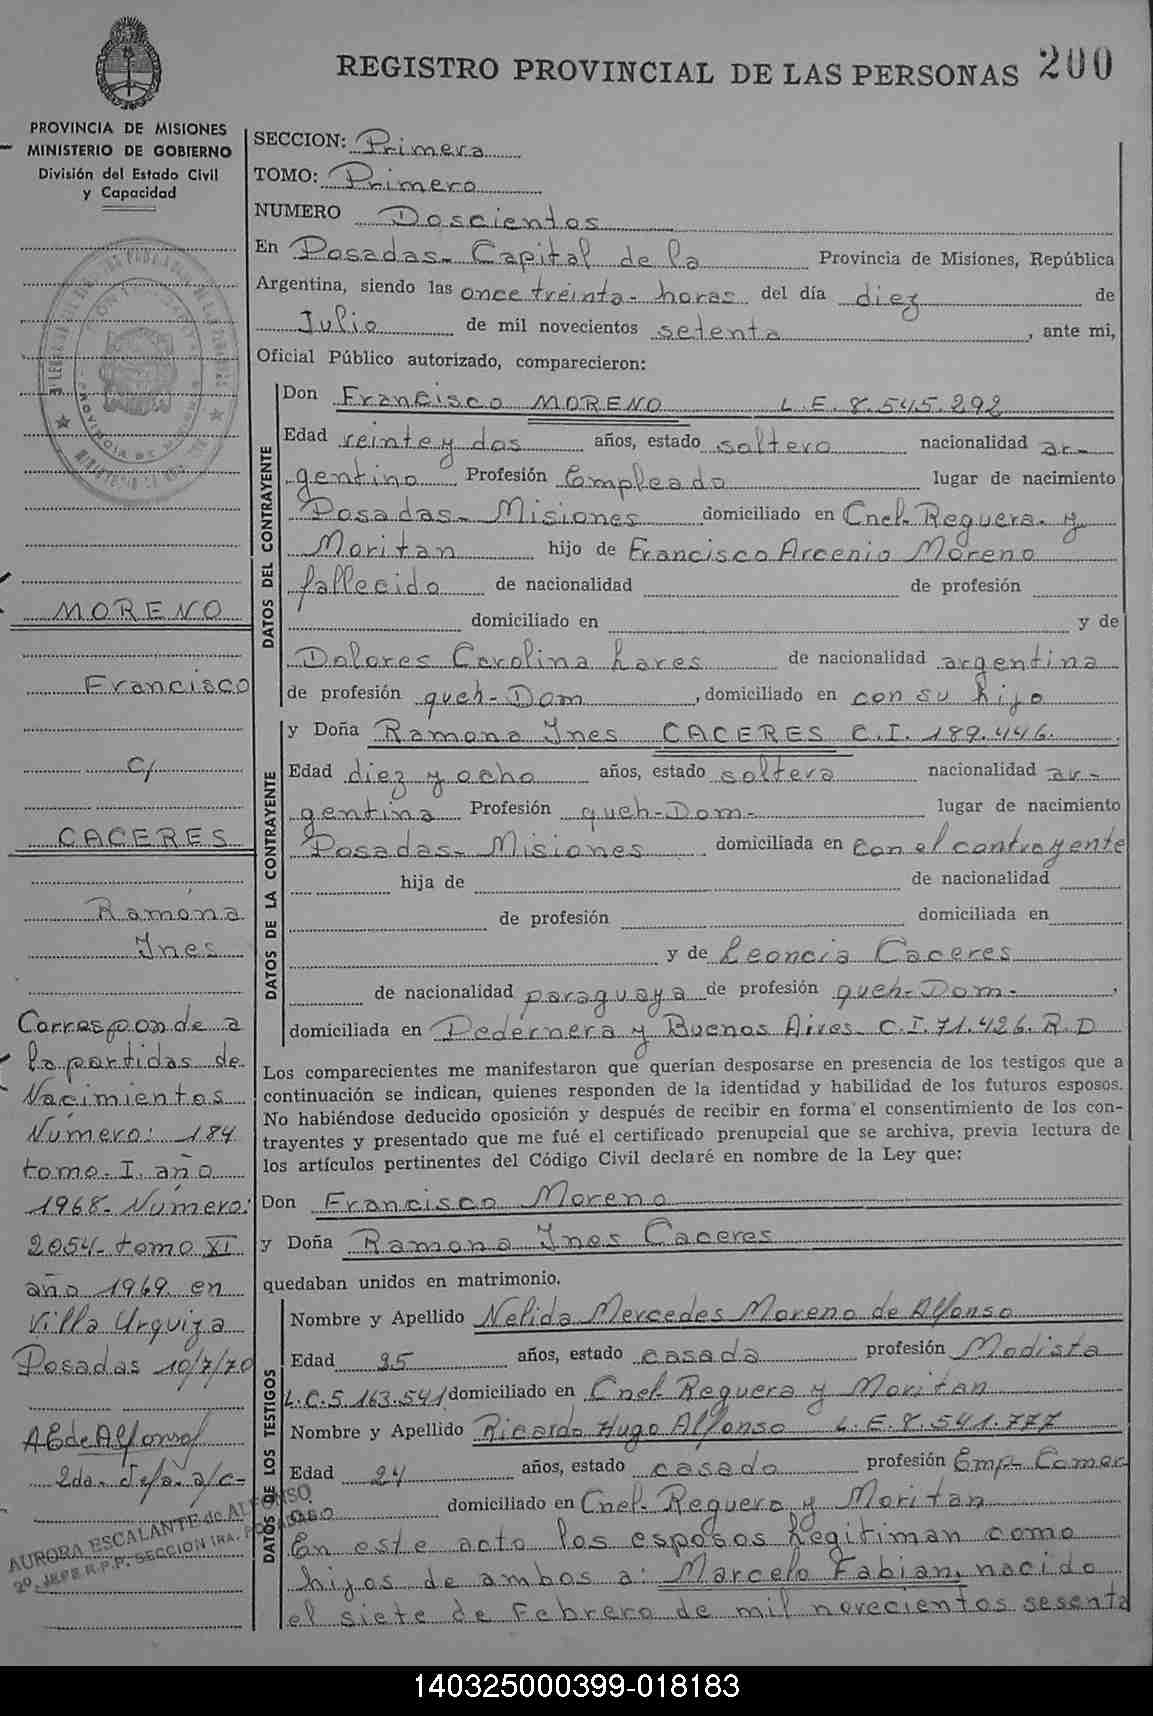 REGISTRO PROVINCIAL DE LAS PERSONAS 200
PROVINCIA DE MISIONES
MINISTERIO DE GOBIERNO
División del Estado Civil
y Capacidad
MORENO
Francisco
c/
CACERES
Ramona
Ines
Corresponde a
la partidas de
Nacimientos
Número: 184
tomo I. año
1968- Número:
2054- tomo XI
año 1969 en
Villa Urquiza
Posadas 10/7/70
AEdeAlfonso
2da. Jefa a/c-
AURORA ESCALANTE de ALFONSO
2º JEFE R.P.P. SECCION 1RA. POSADAS
SECCION: Primera
TOMO: Primero
NUMERO Doscientos
En Posadas- Capital de la Provincia de Misiones, República
Argentina, siendo las once treinta- horas del día diez de
Julio de mil novecientos setenta, ante mi,
Oficial Público autorizado, comparecieron:
DATOS DEL CONTRAYENTE
Don Francisco MORENO L.E. 8.545.292
Edad veinte y dos años, estado soltero nacionalidad ar-
gentino Profesión Empleado lugar de nacimiento
Posadas- Misiones domiciliado en Cnel- Reguera- y
Moritan hijo de Francisco Arcenio Moreno
fallecido de nacionalidad de profesión
domiciliado en y de
Dolores Carolina Lares de nacionalidad argentina
de profesión queh-Dom, domiciliado en con su hijo
DATOS DE LA CONTRAYENTE
y Doña Ramona Ines CACERES C.I. 189.446.
Edad diez y ocho años, estado soltera nacionalidad ar-
gentina Profesión queh-Dom- lugar de nacimiento
Posadas- Misiones domiciliada en Con el contrayente
hija de de nacionalidad
de profesión domiciliada en
y de Leoncia Caceres
de nacionalidad paraguaya de profesión queh-Dom-,
domiciliada en Pedernera y Buenos Aires- C.I. 71.426. R.D
Los comparecientes me manifestaron que querían desposarse en presencia de los testigos que a
continuación se indican, quienes responden de la identidad y habilidad de los futuros esposos.
No habiéndose deducido oposición y después de recibir en forma el consentimiento de los con-
trayentes y presentado que me fué el certificado prenupcial que se archiva, previa lectura de
los artículos pertinentes del Código Civil declaré en nombre de la Ley que:
Don Francisco Moreno
y Doña Ramona Ines Caceres
quedaban unidos en matrimonio.
DATOS DE LOS TESTIGOS
Nombre y Apellido Nelida Mercedes Moreno de Alfonso
Edad 25 años, estado casada profesión Modista
L.C.5.163.541 domiciliado en Cnel- Reguera y Moritan
Nombre y Apellido Ricardo Hugo Alfonso L.E.8.541.777
Edad 24 años, estado casado profesión Emp- Comer
cio domiciliado en Cnel- Reguera y Moritan
En este acto los esposos Legitiman como
hijos de ambos a: Marcelo Fabian, nacido
el siete de Febrero de mil novecientos sesenta
140325000399-018183